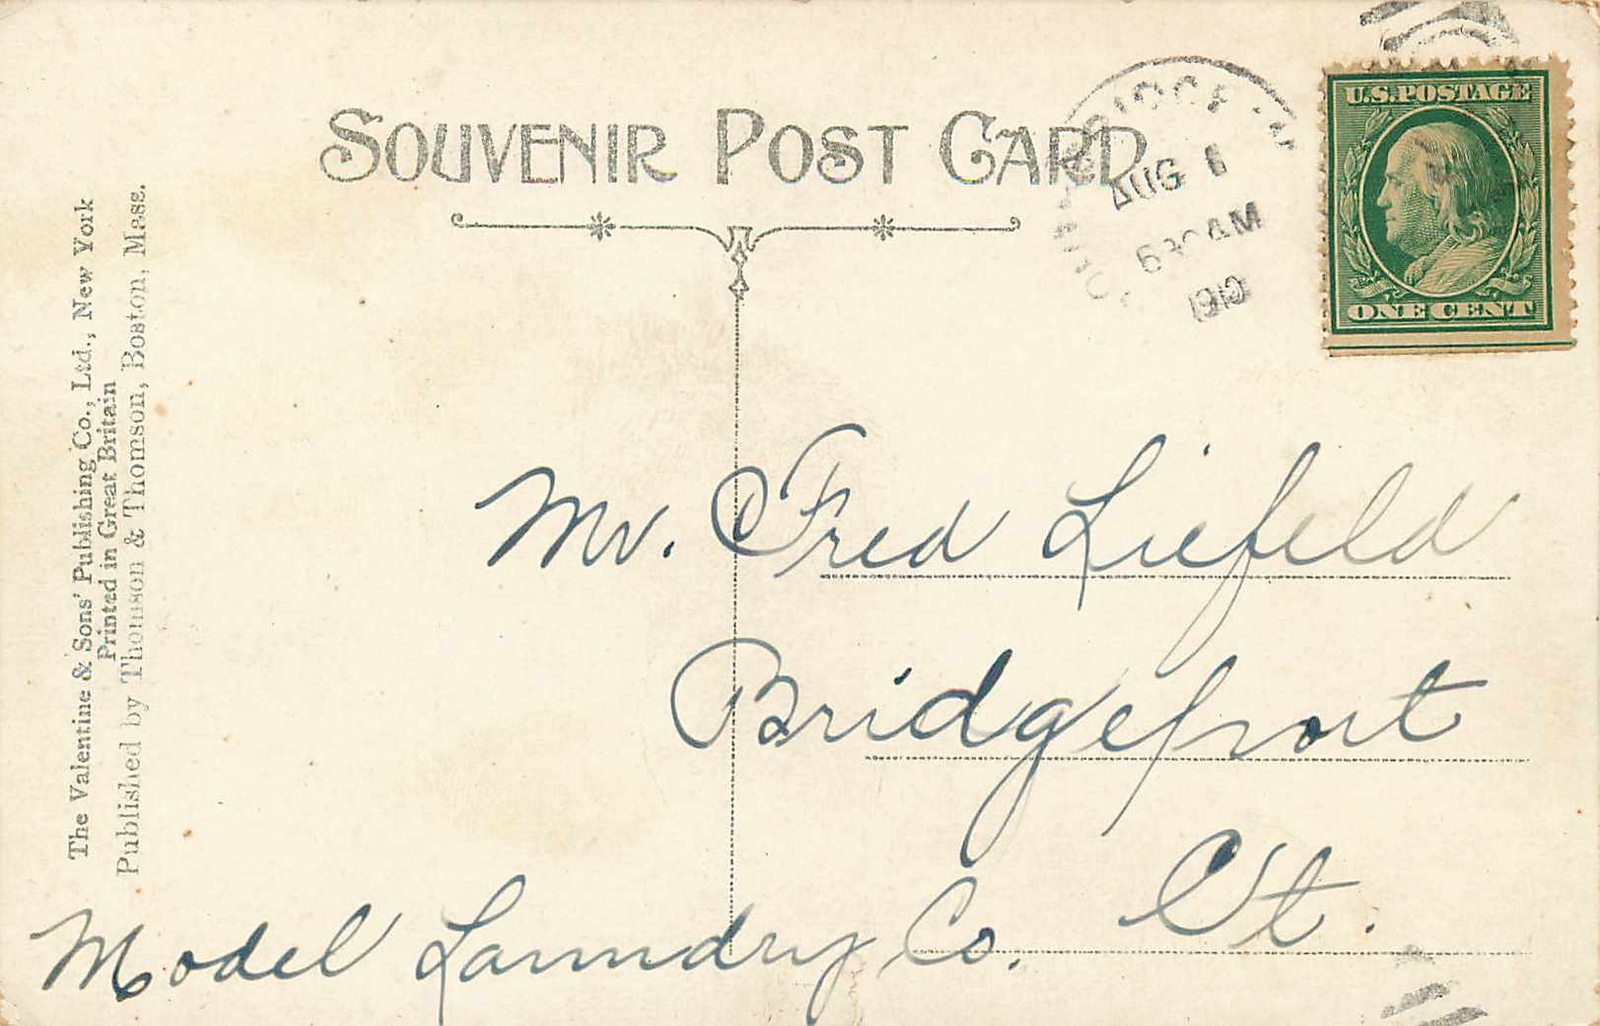 SOUVENIR POST CARD
AUG 6
630AM
1910
U.S.POSTAGE
ONE CENT
The Valentine & Sons' Publishing Co., Ltd., New York
Printed in Great Britain
Published by Thomson & Thomson, Boston, Mass.
Mr. Fred Liefeld
Bridgeport
Ct.
Model Laundry Co.